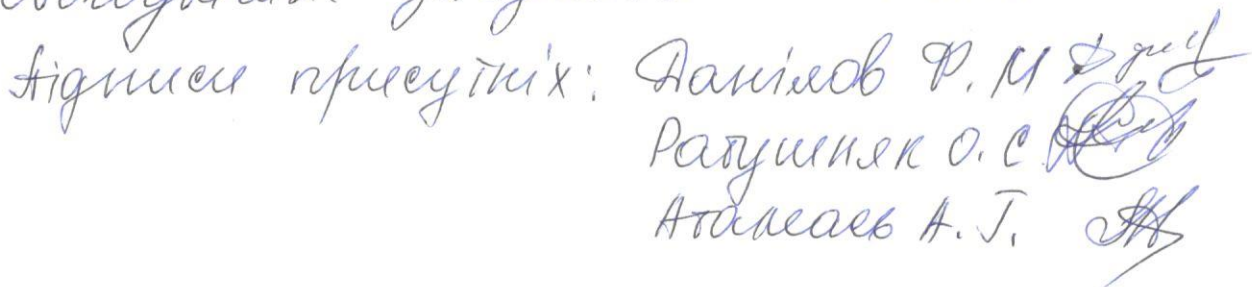 Підписи присутніх: Данілов Ф. М
Ратушняк О. С
Атанасов А. Г.